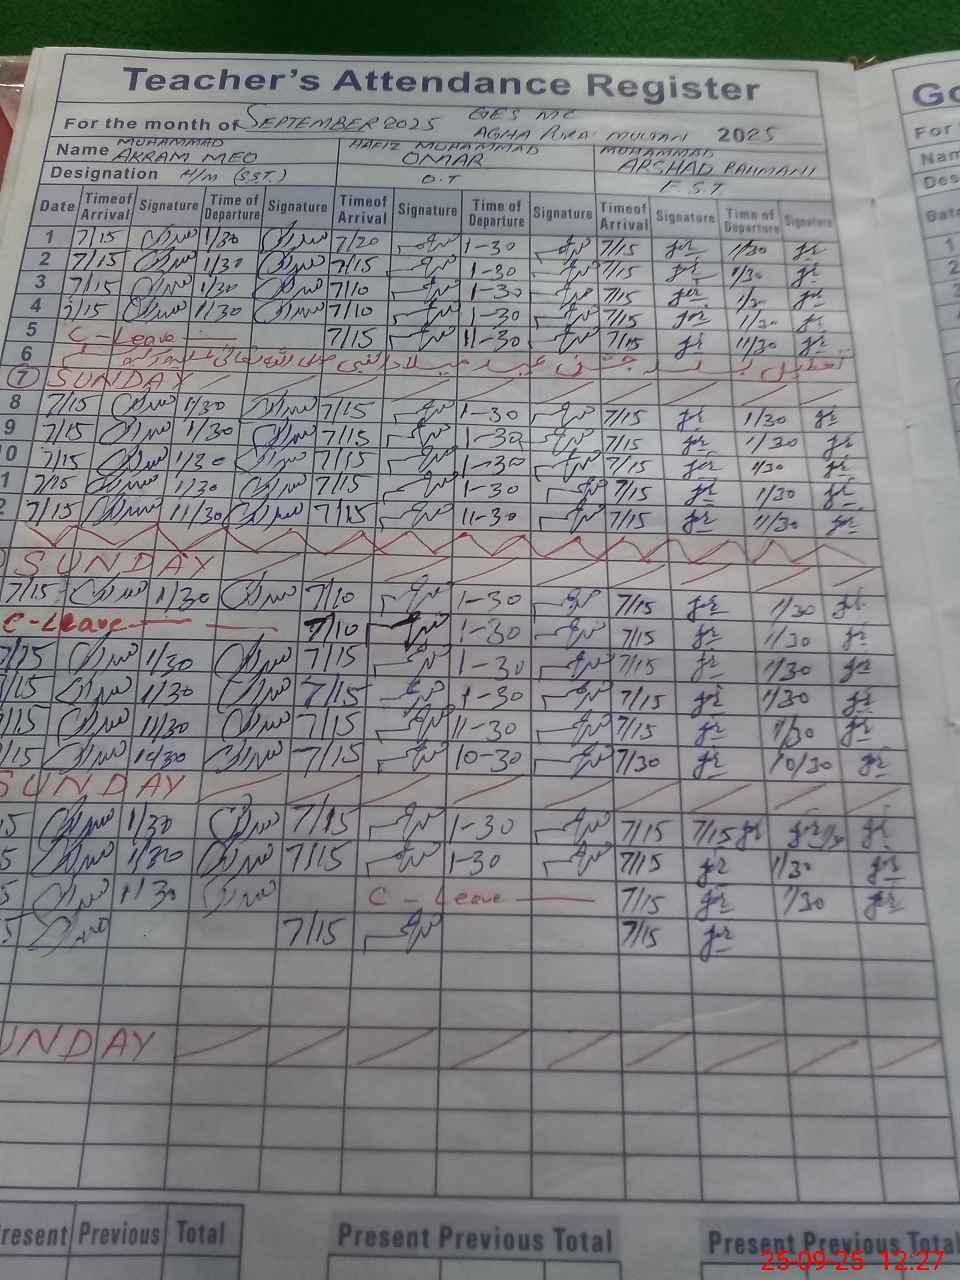 Teacher's Attendance Register
Go
For the month of SEPTEMBER 2025 GES MC
AGHA MULTAN 2025
For
Name MUHAMMAD AKRAM MEO HAFIZ MUHAMMAD OMAR MUHAMMAD ARSHAD RAHMANI
Nam
Designation H/M (SST.) O.T E.S.T.
Des
Date Time of Arrival Signature Time of Departure Signature Time of Arrival Signature Time of Departure Signature Time of Arrival Signature Time of Departure Signature
Date
1 7/15 1/30 7/20 1-30 7/15 1/30
2 7/15 1/30 7/15 1-30 7/15 1/30
3 7/15 1/30 7/10 1-30 7/15 1/30
4 7/15 1/30 7/10 1-30 7/15 1/30
5 C-Leave 7/15 11-30 7/15 11/30
6
7 SUNDAY
8 7/15 1/30 7/15 1-30 7/15 1/30
9 7/15 1/30 7/15 1-30 7/15 1/30
0 7/15 1/30 7/15 1-30 7/15 1/30
1 7/15 1/30 7/15 1-30 7/15 1/30
2 7/15 11/30 7/15 11-30 7/15 11/30
SUNDAY
7/15 1/30 7/10 1-30 7/15 1/30
C-Leave 7/10 1-30 7/15 1/30
7/15 1/30 7/15 1-30 7/15 1/30
/15 1/30 7/15 1-30 7/15 1/30
/15 11/30 7/15 11-30 7/15 11/30
/15 10/30 7/15 10-30 7/30 10/30
SUNDAY
5 1/30 7/15 1-30 7/15 7/15
5 1/30 7/15 1-30 7/15 1/30
5 1/30 C-Leave 7/15 1/30
5 7/15 7/15
UNDAY
resent Previous Total Present Previous Total Present Previous Total
25-09-25 12:27